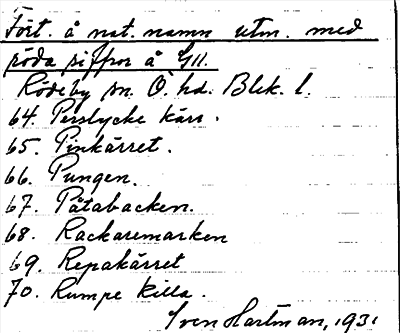 Fört. å nat. namn utm. med
röda siffror å GK.
Rödeby sn. Ö. hd. Blek. l.
64. Perslycke kärr.
65. Pinkärret.
66. Pungen.
67. Påtabacken.
68. Rackaremarken
69. Repakärret
70. Rumpe källa.
Sven Hartman, 1931